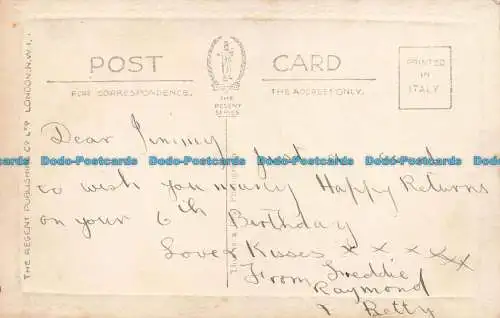 POST CARD
FOR CORRESPONDENCE. THE ADDRESS ONLY.
THE
REGENT
SERIES
PRINTED
IN
ITALY
THE REGENT PUBLISHING Co LTD LONDON. N.W.1.
Dear Jimmy just a card
to wish you many Happy Returns
on your 6th Birthday
Love & Kisses x x x x x x
From Freddie
Raymond
& Betty
Dodo-Postcards Dodo-Postcards Dodo-Postcards Dodo-Postcards
Dodo-Postcards Dodo-Postcards Dodo-Postcards Dodo-Postcards